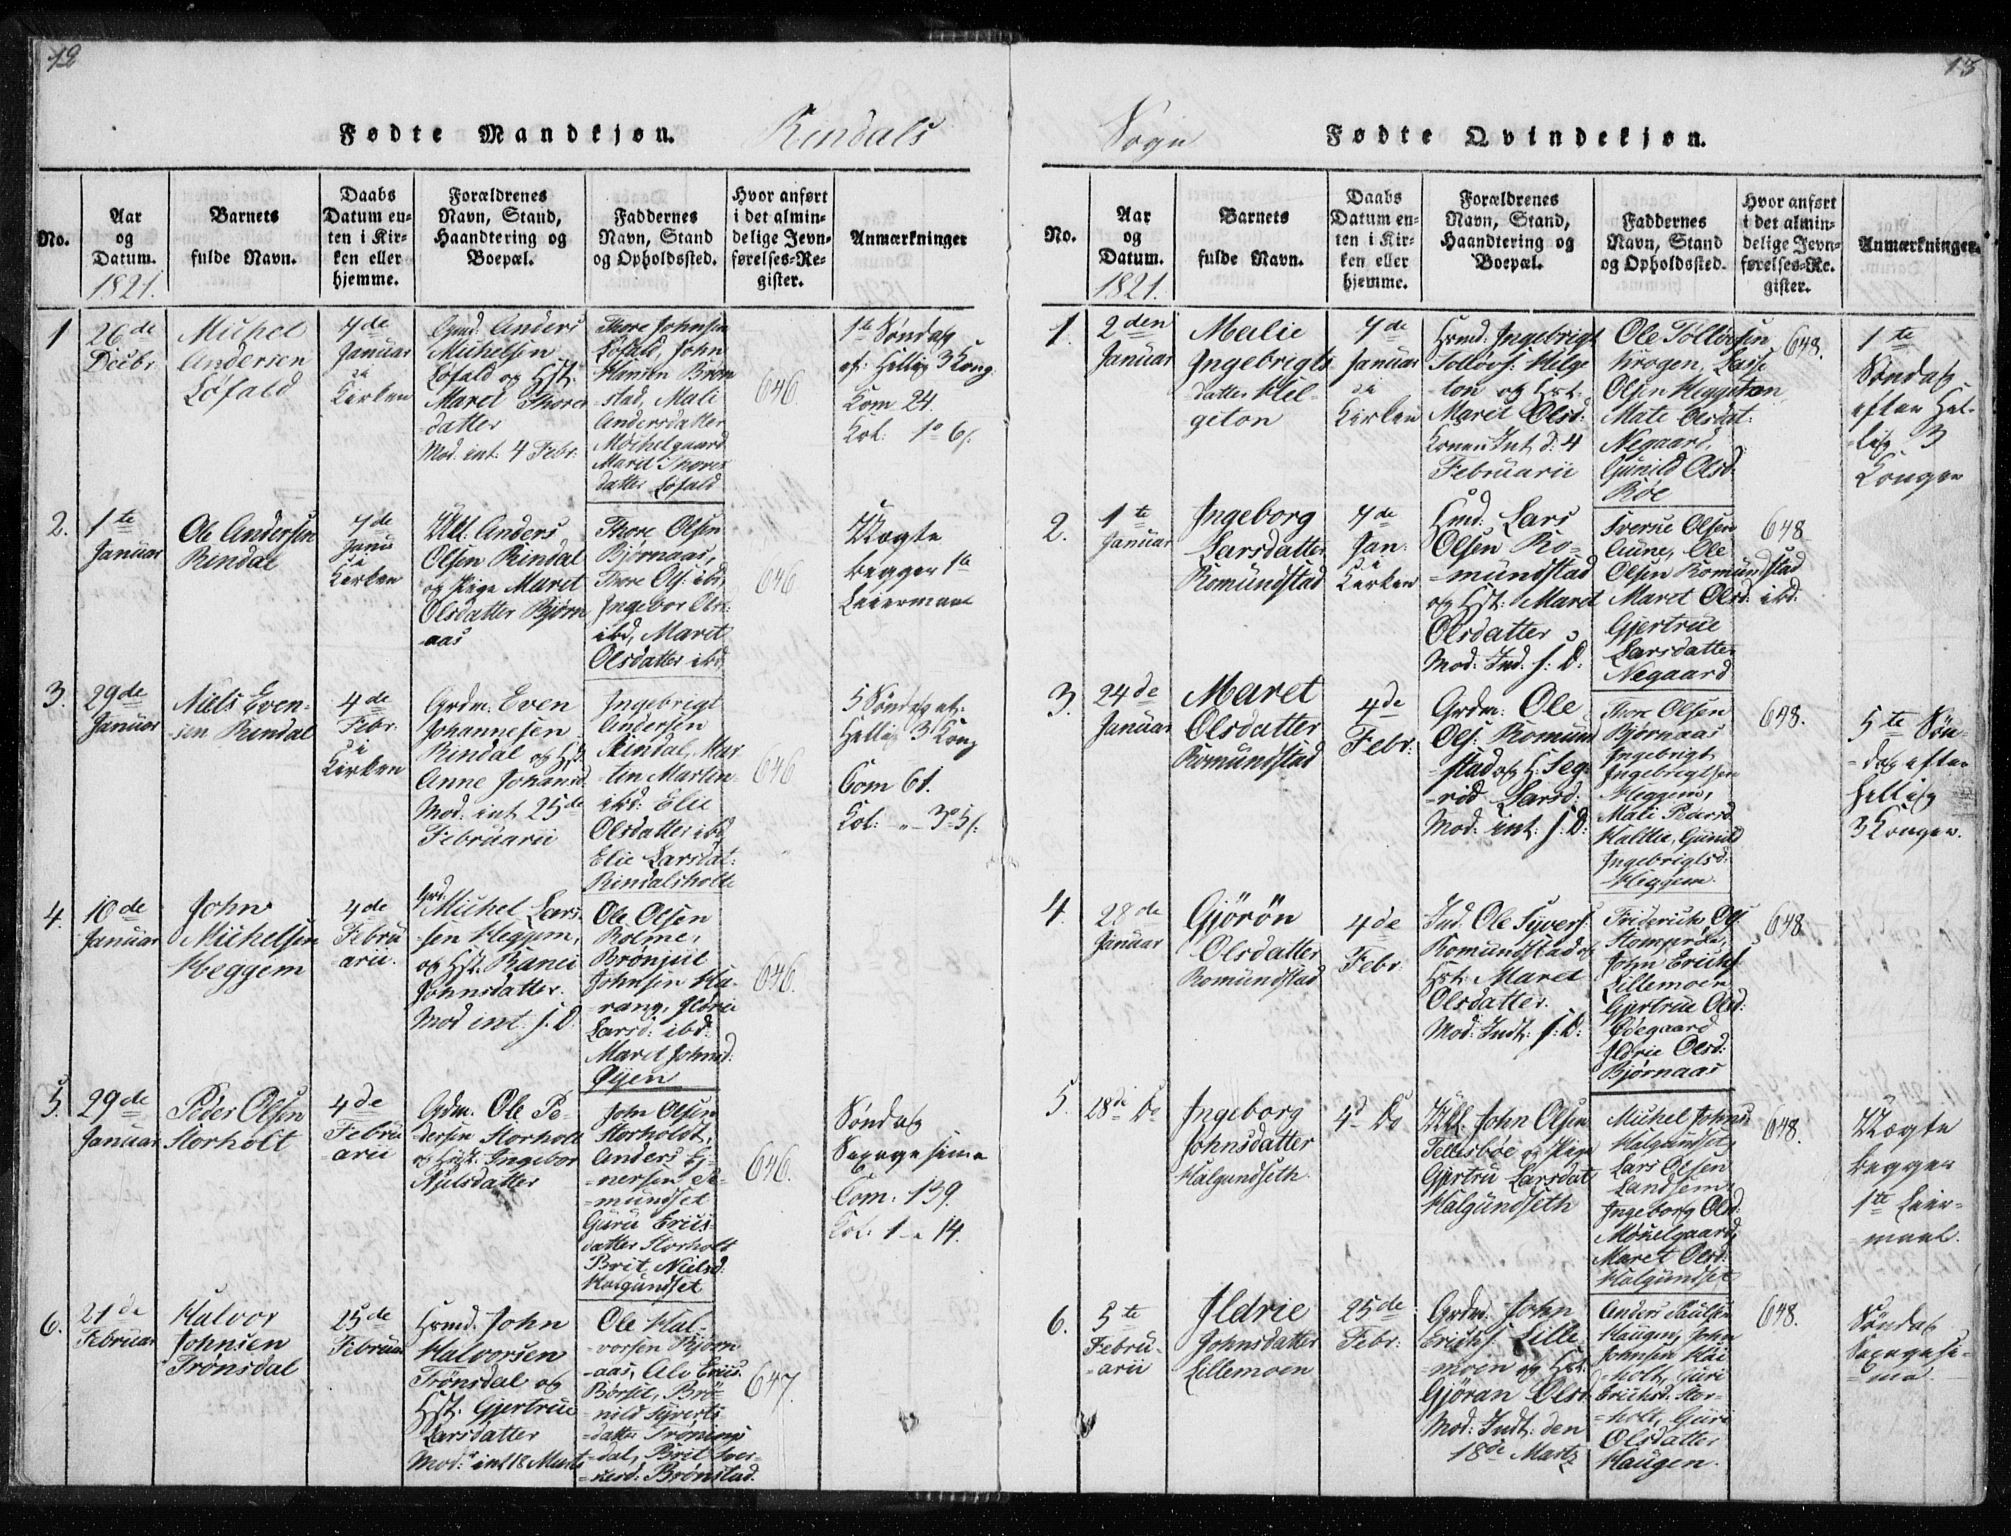 12
Fødte Mandkjøn.
Rindals
No.
Aar
og
Datum.
1821.
Barnets
fulde Navn.
Daabs
Datum en-
ten i Kir-
ken eller
hjemme.
Forældrenes
Navn, Stand,
Haandtering og
Boepæl.
Faddernes
Navn, Stand
og Opholdssted.
Hvor anført
i det almin-
delige Jevn-
førelses-Re-
gister.
Anmærkninger
1
26de
Decbr
Michel
Andersen
Løfald
7de
Januar
i
Kirken
Anders
Michelsen
Løfald og Hst:
Maret Thores
datter
Mod. int. 4 Febr.
Thore Johnsen
Løfald, John
Hansen Brøn
-stad, Mali
Andersdatter
Møchelgaard
Maret Thores
datter Løfald
646
1te Søndag
ef. Hellig 3 Kong
Com 24.
Col:
2.
1te
Januar
Ole Andersen
Rindal
7de
Janu
i
Kirken
Anders
Olsen Rindal
og Pige Maret
Olsdatter Bjørn
aas
Thore Olsen
Bjørnaas,
Thore Ols. ibd,
Ingebor Ols:
ibd, Marit
Olsdatter ibd
646
Uægte
begges 1te
Leiermaal
3.
29de
Januar
Niels Even-
-sen Rindal
4de
Febr.
i
Kirken
Grdm. Even
Johannesen
Rindal og Hst
Anne Johansd
Mod. int 25de
Februarii
Ingebrigt
Andersen
Rindal, Mar
-ten Marten-
ibd: Elie
Olsdatter ibd
Elie Larsdat:
Rindalsholte
646
5 Søndag ef.
Hellig 3 Kong
Com 61.
Col:
4.
10de
Januar
John
Michelsen
Heggem
4de
Febru
arii.
Grd.
Michel Lars
-sen Heggem,
og Hst. Ranei
Johnsdatter.
Mod int. s. D.
Ole Olsen
Bolme,
Brønjul
Johnsen Ka-
-rang, Ildrie
Larsd: ibd:
Maret Johnsd:
Øyen
646.
5.
29de
Januar
Peder Olsen
Storholt
4de
Febru
-arii
Grdm. Ole Pe-
-dersen Storholt
og Hst. Ingebor
Nielsdatter
John Olsen
Storholdt,
Anders Ej-
-nersen
-mundset
Guru Erics-
datter Storholt
Brit Nielsd:
Halgundset
646.
Søndag
Sexagesima
Com. 139.
Col: 1 - 14.
6.
21de
Februar
Halvor
Johnsen
Trønsdal
25de
Februar
Husmd. John
Halvorsen
Trønsdal og
Hst: Gjertrue
Larsdatter
Mod: int 18 Marts
Ole Hal-
-vorsen Bjørn
-aas, Ale Erics.
Børset, Brø-
-nild Syverts
-datter Trøning
-dal, Brit Sver-
-kesd: Brønstad.
647.
13
Sogn
Fødte Qvindekjøn.
No.
Aar
og
Datum.
1821.
Barnets
fulde Navn.
Daabs
Datum en-
ten i Kir-
ken eller
hjemme.
Forældrenes
Navn, Stand,
Haandtering og
Boepæl.
Faddernes
Navn, Stand
og Opholdssted.
Hvor anført
i det almin-
delige Jevn-
førelses-Re-
gister.
Anmærkninger.
1.
2den
Januar
Malie
Ingebrigts
datter Hel-
geton
7de
Januar
i
Kirken
Husmd. Ingebrigt
Tolløvs: Helge
ton og Hst.
Marit Olsd:
Konen Int. d. 4
Februarii
Ole Tølløvsen
Krogen, Lasse
Olsen Heggetron
Mate Olsdat:
Negaard
Gunild Olsd.
Bøe
648.
1te
Søndag
efter Hel-
-lig 3
Konger
2.
1te
Januar
Ingeborg
Larsdatter
Romundstad
7de
Jan:
i
Kirken
Hmd. Lars
Olsen Ro-
-mundstad
og Hst: Maret
Olsdatter
Mod: Ind. s: D:
Sverke Olsen
Aune, Ole
Olsen Romundstad
Maret Olsd: ibd:
Gjertrue
Larsdatter
Negaard
648
3.
24de
Januar
Maret
Olsdatter
Romundstad
4de
Febr:
Grdm: Ole
Ols. Romund
-stad og H: Seg-
-rid Larsd:
Mod: int: s: D:
Thore Olsen
Bjørnaas
Ingebrigt
Ingebrigtsen
Heggem,
Mali Baarsd
Haltlie, Gunild
Ingebrigtsd:
Heggem
648.
5te Søn-
-dag efter
Hellig
3 Konger.
4.
28de
Januar
Gjørøn
Olsdatter
Romundstad
4de
Febr:
Ind. Ole Syvers.
Romundstad og
Hst. Maret
Olsdatter.
Mod: Indt. s: D:
Friderich Ols.
Stomprøe,
John Erichs.
Lillemoen
Gjertrue Olsd:
Ødegaard
Ildrie Olsd:
Bjørnaas
648
5.
28de Do
Ingeborg
Johnsdatter
Halgundseth
4de Do
John Olsen
Tellesbøe og Pige
Gjertru Larsdat
Halgundseth
Michel Johns
Halgundset,
Lars Olsen
Landsem
Ingeborg Olsd:
Møkelgaard,
Maret Olsd:
Halgundset
648.
Uægte
begges
1te Leier-
-maal.
6.
5te
Febru-
-arii
Ildrie
Johnsdatter
Lillemoen
25de
Febr:
Grdm: John
Erichs. Lille
-moen og Hst:
Gjøran Olsd
Mod: Indt: den
18de Marts
Anders Paulsen
Haugen, John
Johnsen Kaa
-holt, Guri
Erichsd. Stor-
-holt, Guri
Olsdatter
Haugen.
648.
Søndag
Sexagesi-
-ma.